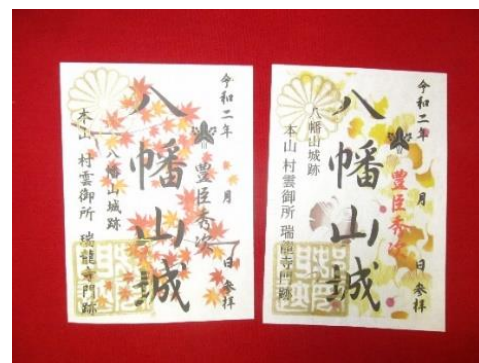 令和二年 月 日 参拝
豊臣秀次
八幡山城
八幡山城跡
本山 村雲御所 瑞龍寺門跡
令和二年 月 日 参拝
豊臣秀次
八幡山城
八幡山城跡
本山 村雲御所 瑞龍寺門跡